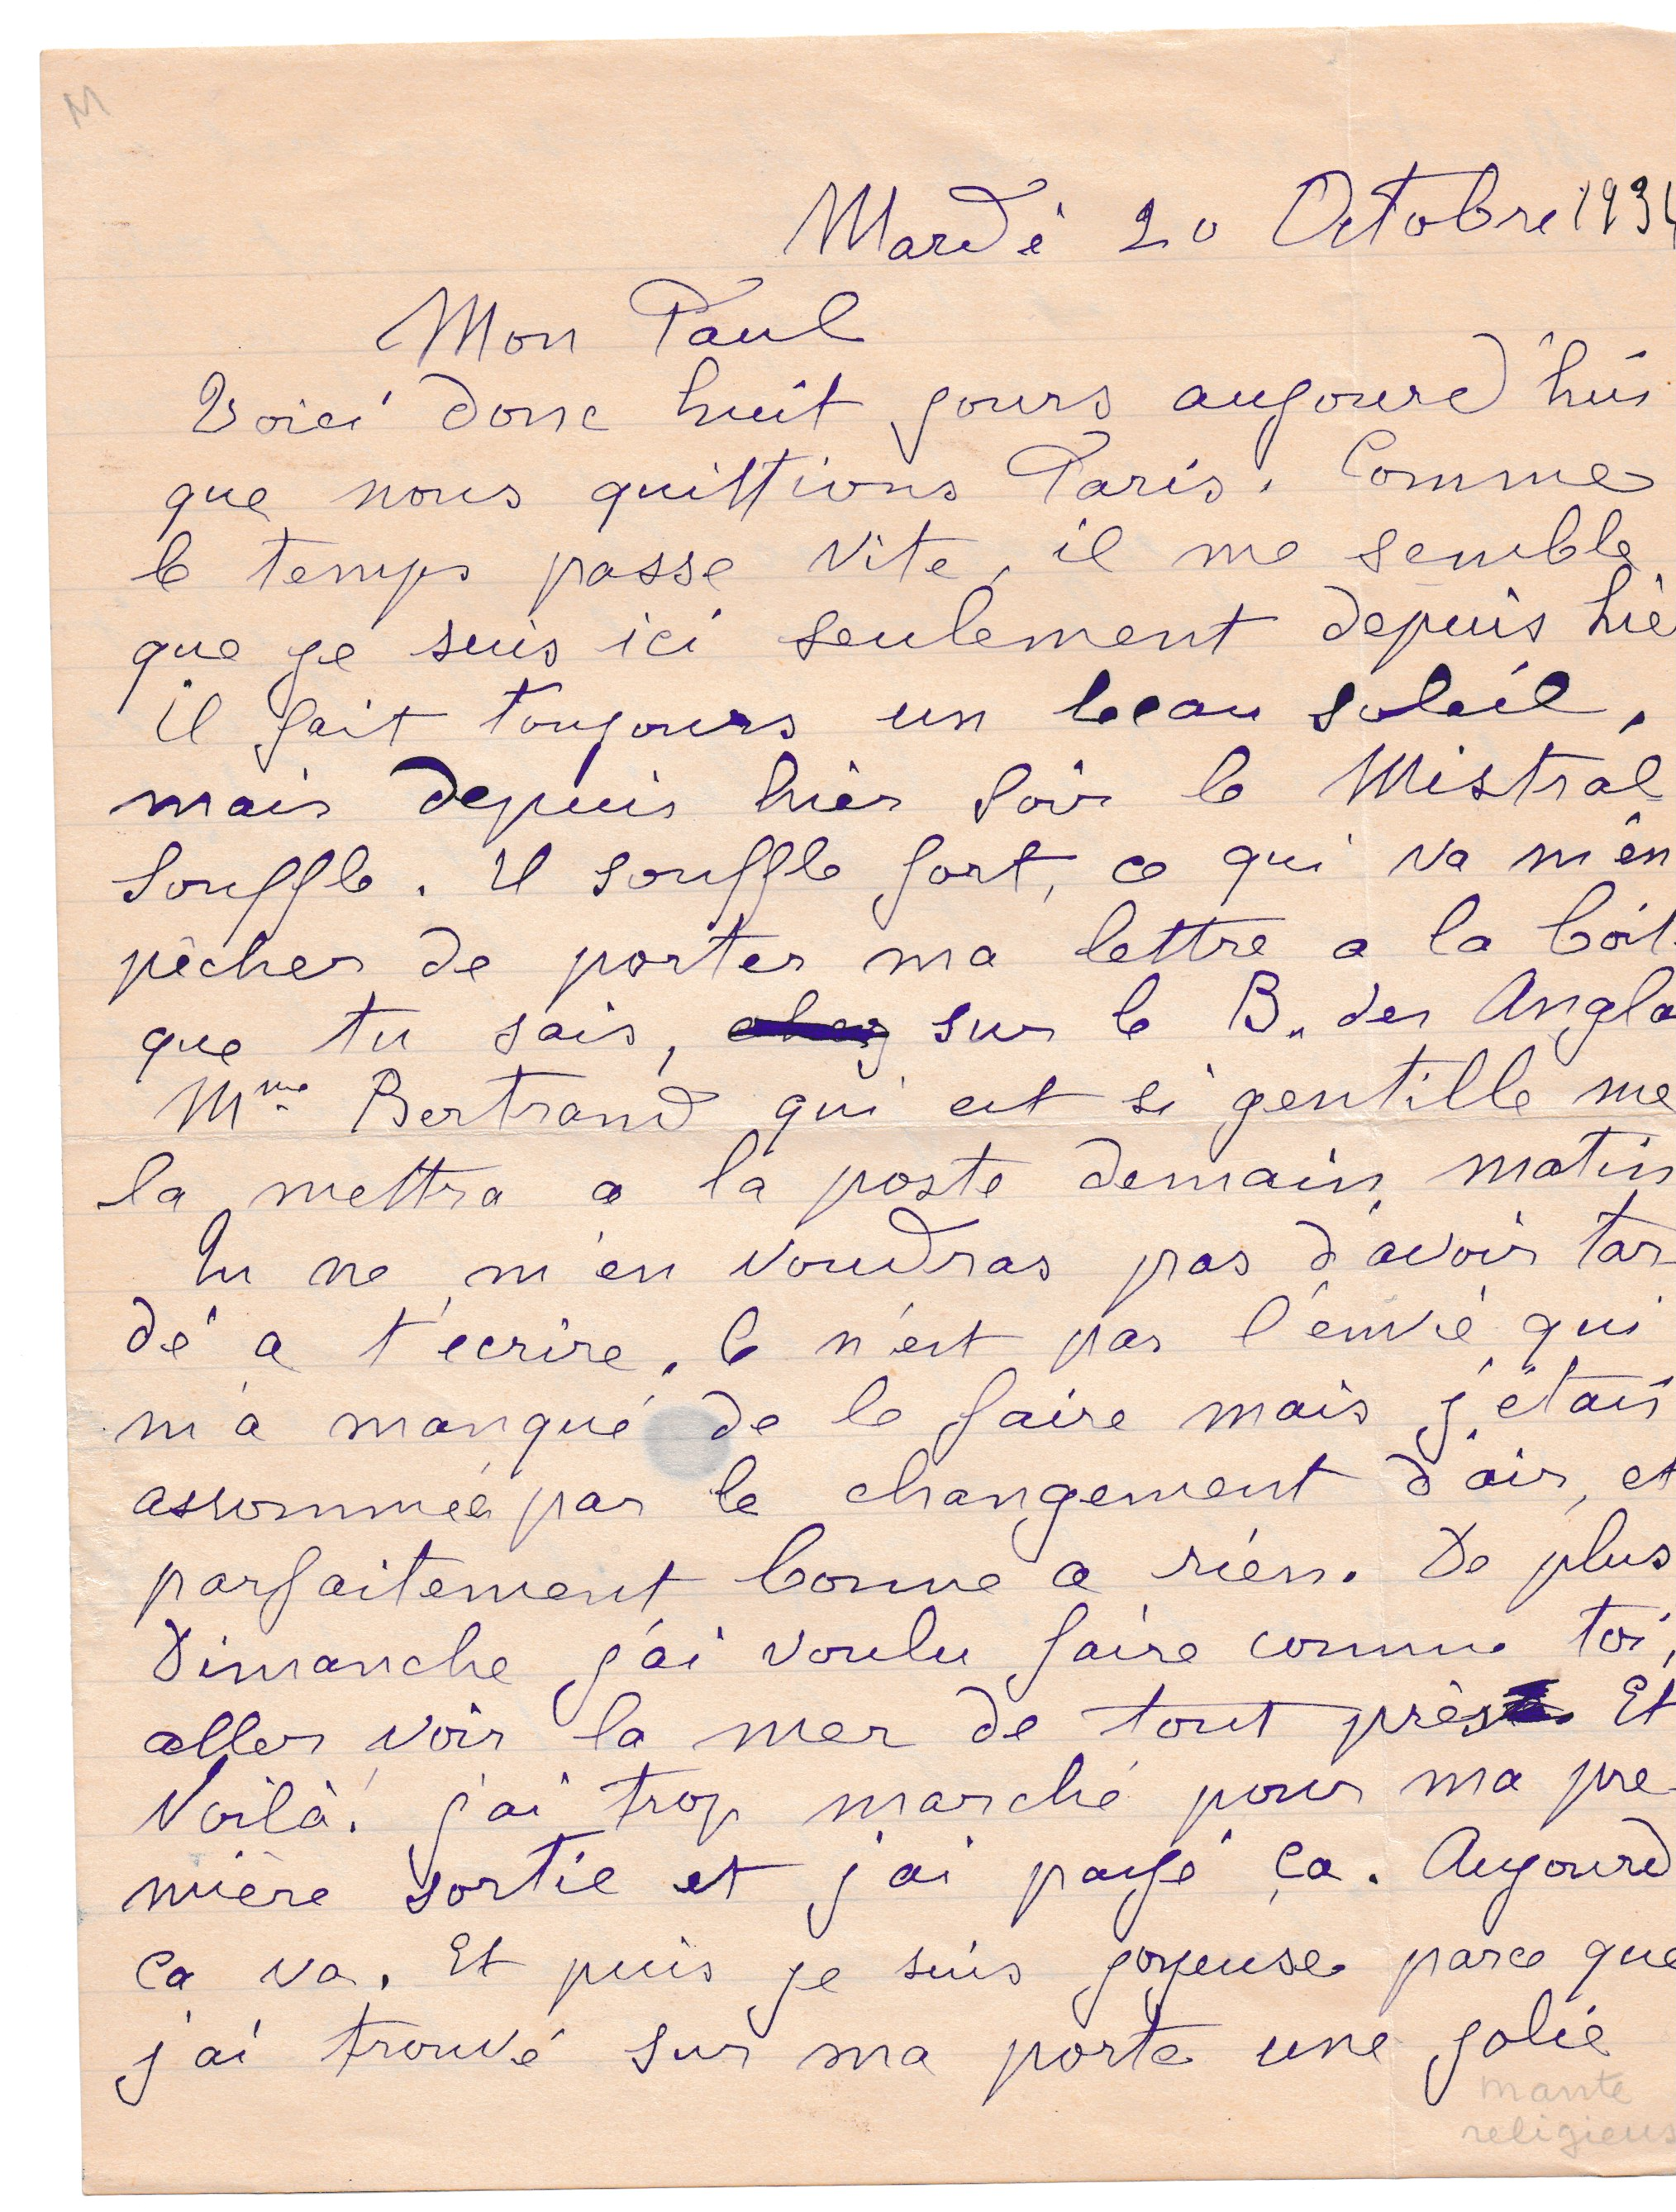 M
Mardi 20 Octobre 193
Mon Paul
Voici donc huit jours aujourd'hui
que nous quittions Paris. Comme
le temps passe vite, il me semble
que je suis ici seulement depuis hie
Il fait toujours un beau soleil,
mais depuis hier soir le Mistral
souffle. Il souffle fort, ce qui va m'en
pêcher de porter ma lettre a la boit
que tu sais, chez sur le B. des Angla
Mme Bertrand qui est si gentille me
la mettra a la poste demain matin
Tu ne m'en voudras pas d'avoir tar-
dé a t'ecrire. Ce n'est pas l'envie qui
m'a manqué de le faire mais j'étais
assommée par le changement d'air, et
parfaitement bonne a rien. De plus
Dimanche j'ai voulu faire comme toi,
aller voir la mer de tout près. Et
Voilà! j'ai trop marché pour ma pre-
mière sortie et j'ai payé ça. Aujourd
ça va. Et puis je suis joyeuse parce que
j'ai trouvé sur ma porte une jolie
mante
religieus